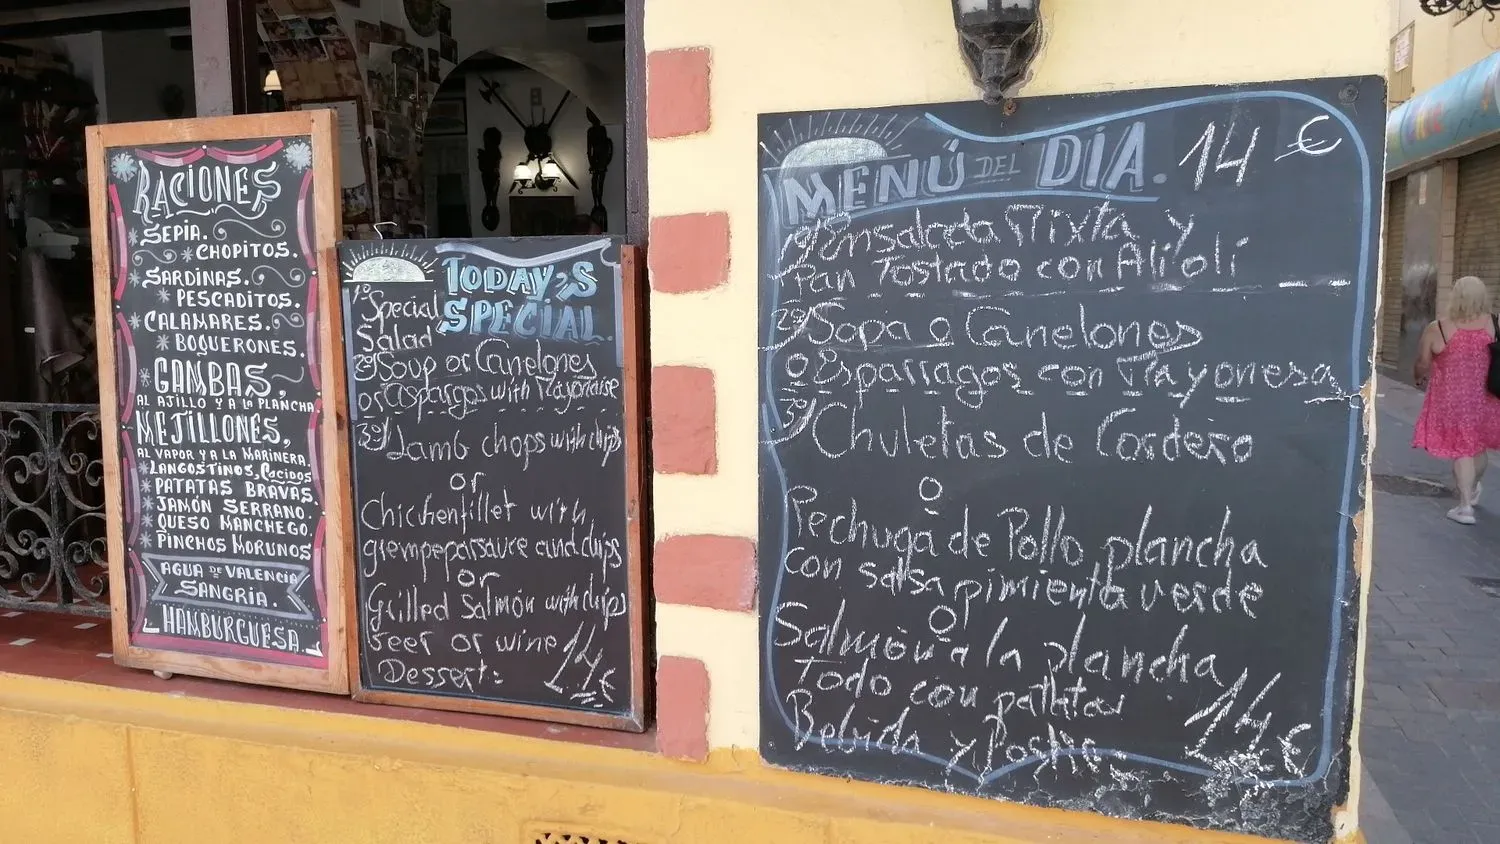 RACIONES
SEPIA.
CHOPITOS.
SARDINAS.
PESCADITOS.
CALAMARES.
BOQUERONES.
GAMBAS,
AL AJILLO Y A LA PLANCHA.
MEJILLONES,
AL VAPOR Y A LA MARINERA.
LANGOSTINOS, Cocidos
PATATAS BRAVAS.
JAMÓN SERRANO.
QUESO MANCHEGO.
PINCHOS MORUNOS
AGUA DE VALENCIA
SANGRIA.
HAMBURGUESA.
TODAY'S
SPECIAL.
1º Special
Salad
2º/Soup or Canelones
or aspargos with Mayonaise
3º/Lamb chops with chips
or
Chickenfillet with
greenpeparsauce and chips
or
Grilled Salmón with chips
Beer or wine
Dessert: 14€
MENÚ DEL DÍA. 14 €
1º/Ensalada Mixta y
Pan Tostado con Ali oli
2º/Sopa o Canelones
o Esparragos con Mayonesa
3º/Chuletas de Cordero
o
Pechuga de Pollo plancha
con salsa pimienta verde
o
Salmón a la plancha
Todo con patatas
Bebida y Postre 14€